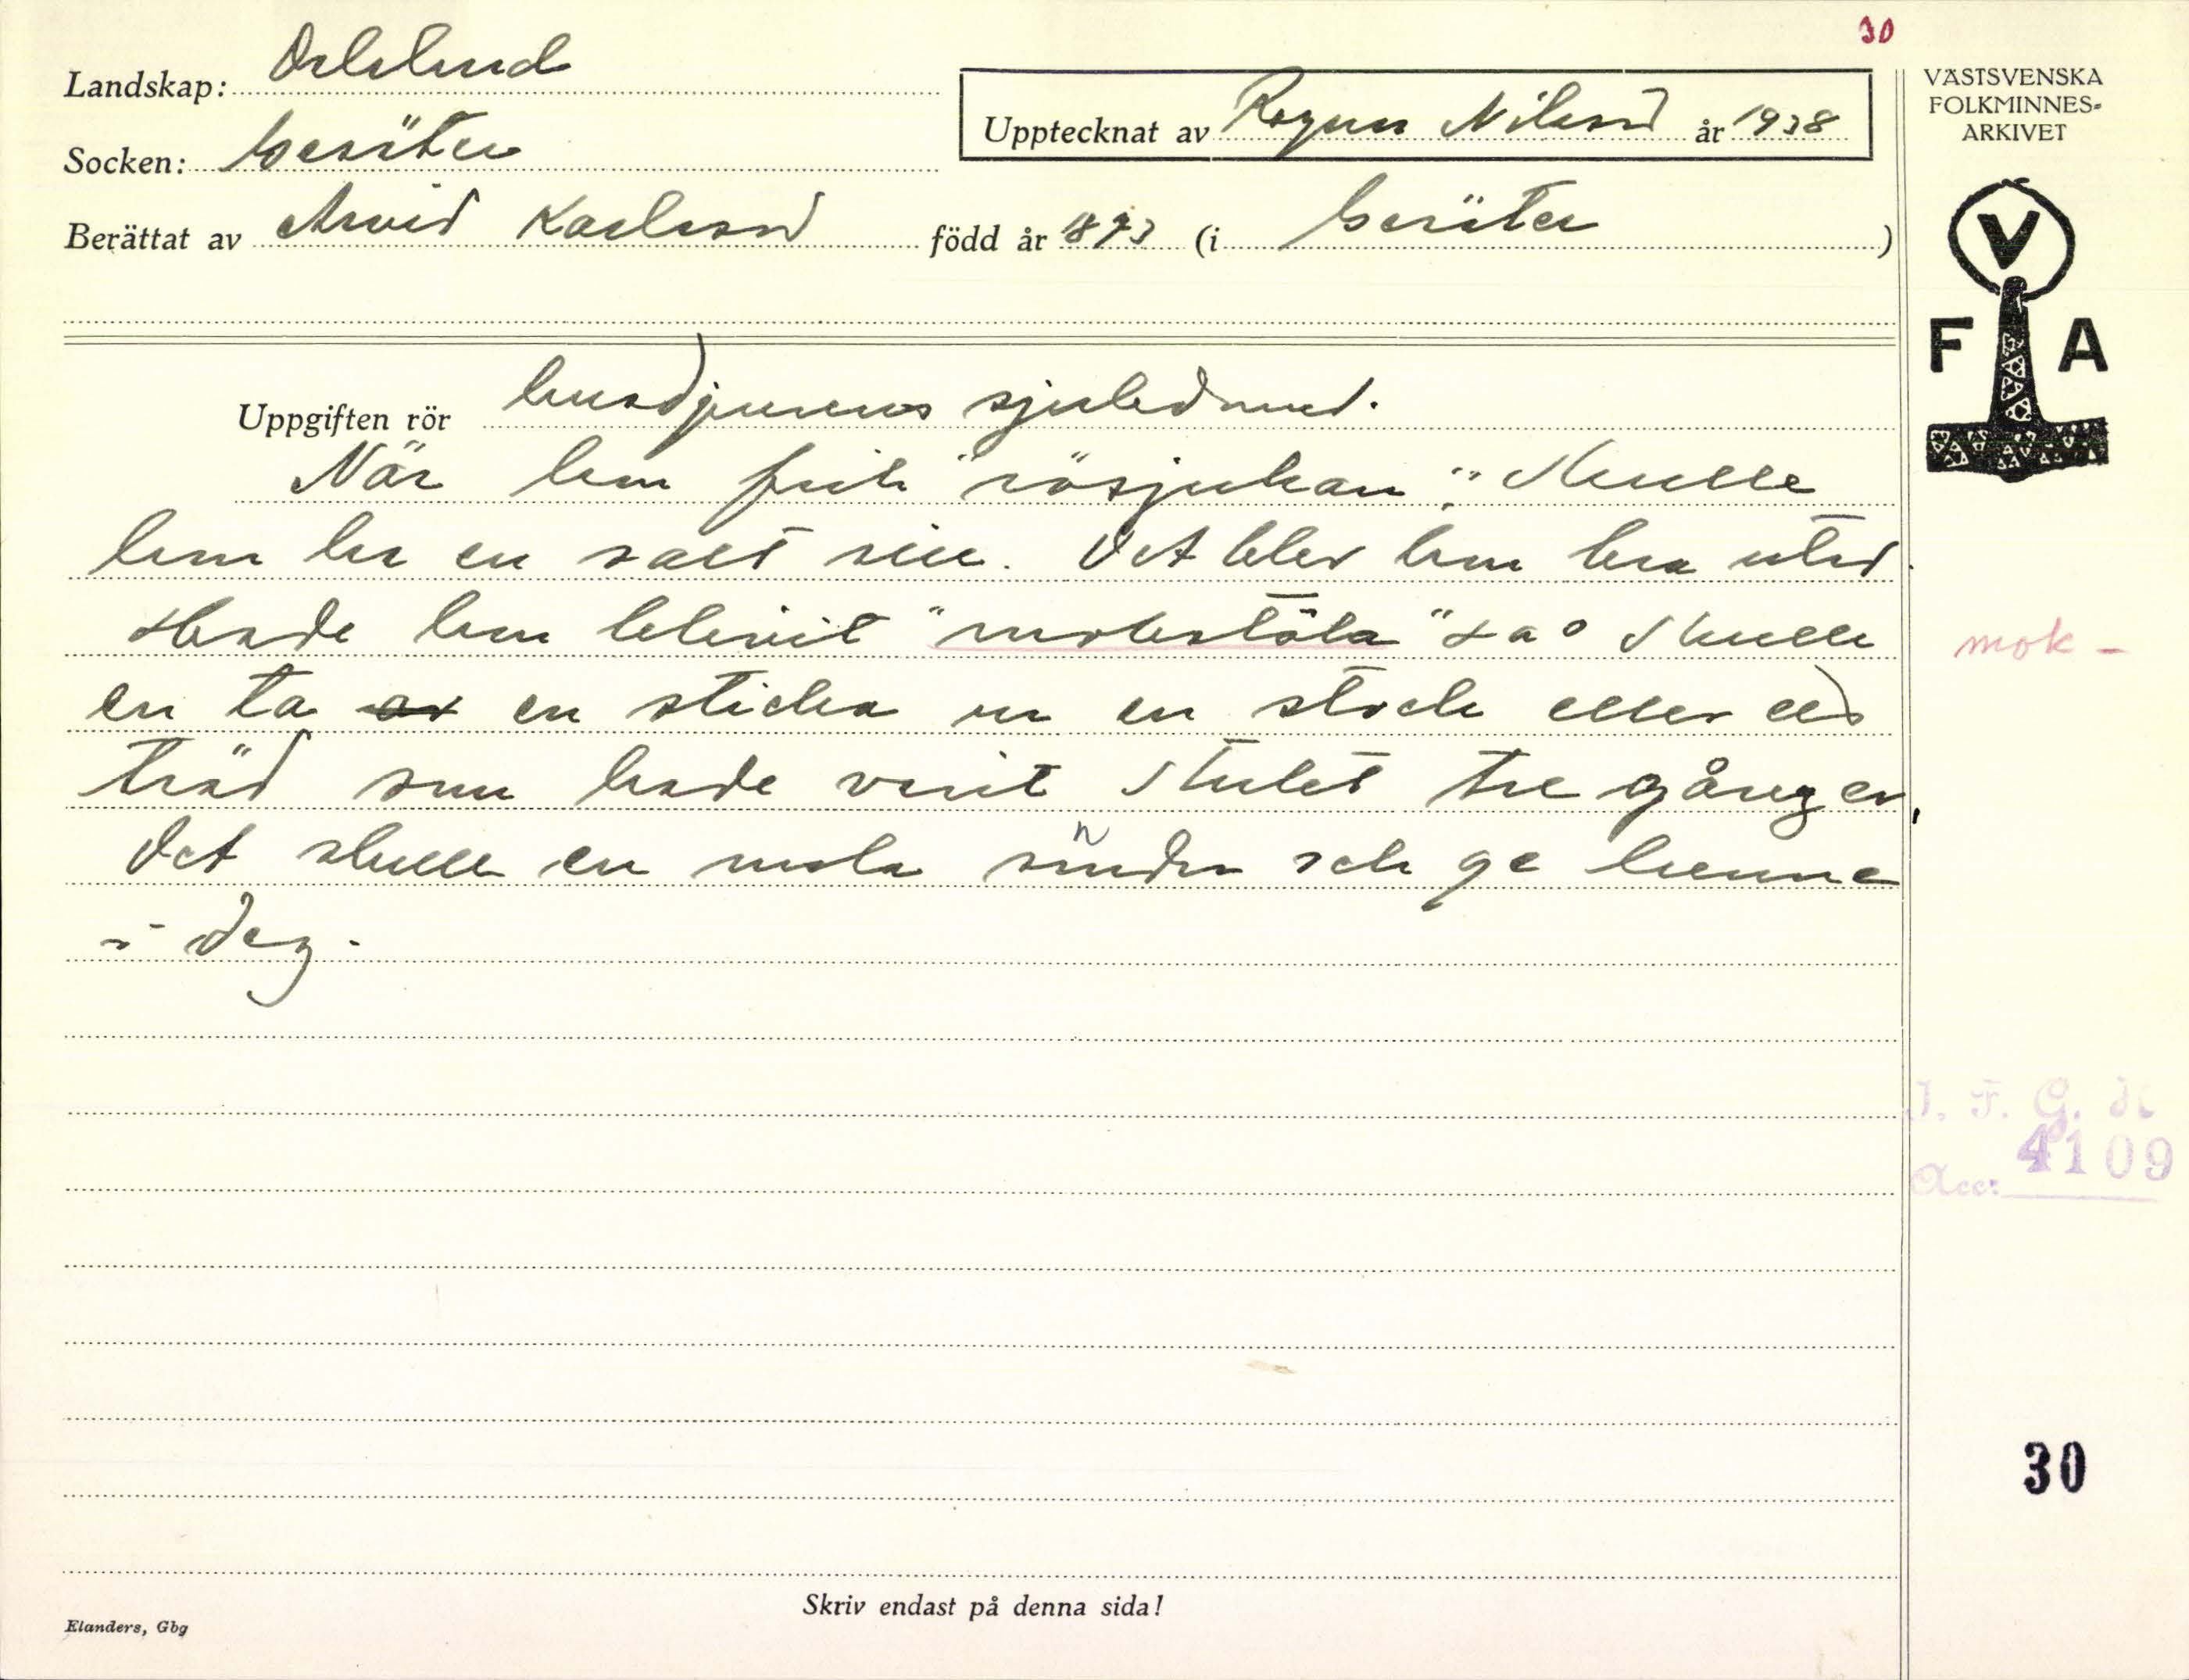 30
Landskap: Dalsland
Upptecknat av Ragnar Nilsson år 1938
VÄSTSVENSKA
FOLKMINNES-
ARKIVET
Socken: Gesäter
Berättat av Arvid Karlsson född år 1893 (i Gesäter)
V
F A
Uppgiften rör husdjurens sjukdomar.
När hon fick "rösjukan". Skulle
hon ha en salt sill. Det blev hon bra utav.
Hade hon blivit "mokstöla" så skulle
en ta av en sticka ur en stock eller ett
träd som hade varit stulet tre gånger,
Det skulle en mala sönder och ge henne
i deg.
mok-
I. F. G. H
Acc: 4109
30
Skriv endast på denna sida!
Elanders, Gbg